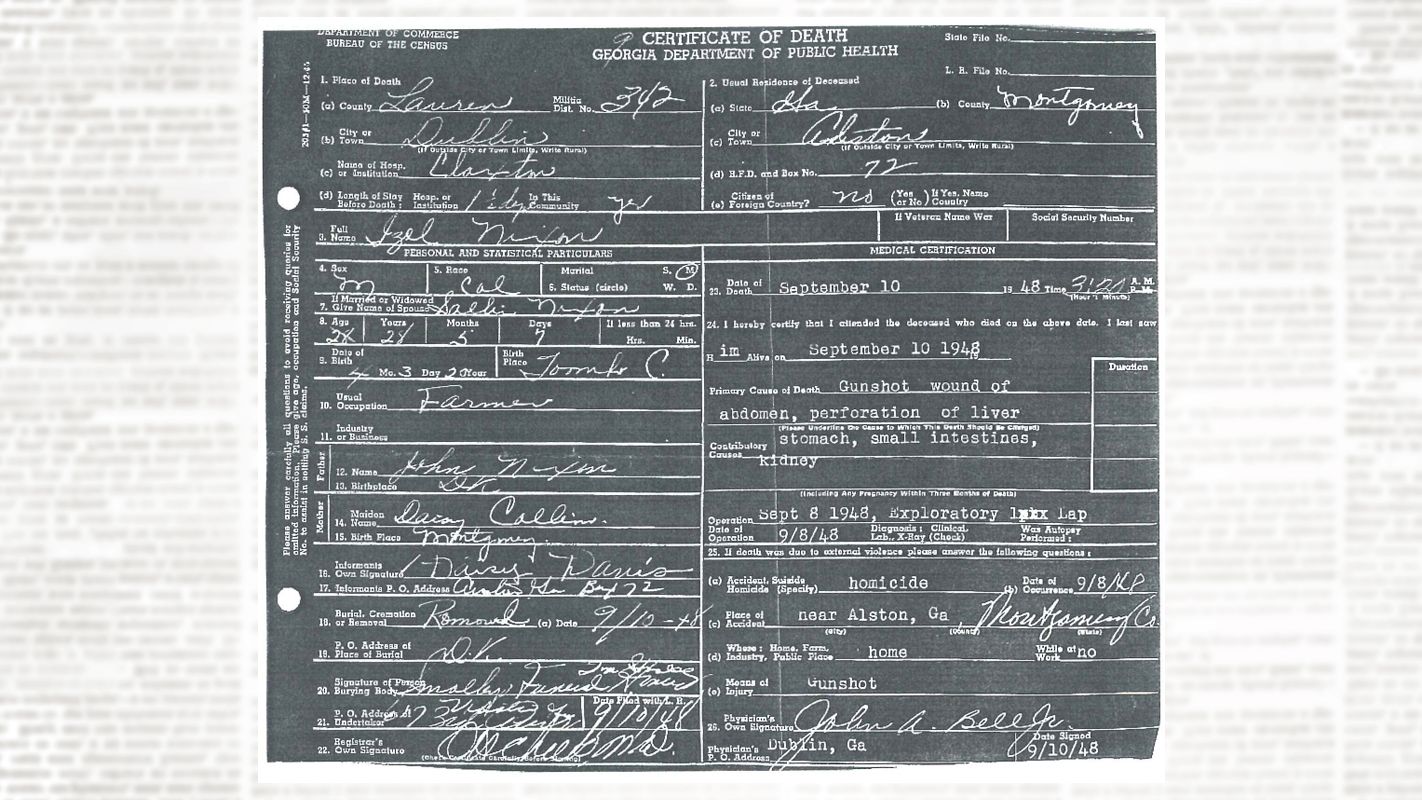 DEPARTMENT OF COMMERCE
BUREAU OF THE CENSUS
CERTIFICATE OF DEATH
GEORGIA DEPARTMENT OF PUBLIC HEALTH
State File No.
L. R. File No.
1. Place of Death
(a) County Lauren Militia Dist. No. 342
(b) City or Town Dublin
(If Outside City or Town Limits, Write Rural)
(c) Name of Hosp. or Institution Claxton
(d) Length of Stay Before Death: Hosp. or Institution 1½ dy In This Community yes
2. Usual Residence of Deceased
(a) State Ga (b) County Montgomey
(c) City or Town Alston
(If Outside City or Town Limits, Write Rural)
(d) R.F.D. and Box No. 72
(e) Citizen of Foreign Country? no (Yes or No) If Yes, Name Country
3. Full Name Izel Nixon
If Veteran Name War
Social Security Number
PERSONAL AND STATISTICAL PARTICULARS
4. Sex M 5. Race Col
6. Marital Status (circle) S. M W. D.
7. If Married or Widowed Give Name of Spouse Sallie Nixon
8. Age 28 Years 28 Months 5 Days 7 If less than 24 hrs. Hrs. Min.
9. Date of Birth Mo. 3 Day 20 Year Birth Place Toombs C.
10. Usual Occupation Farmer
11. Industry or Business
Father
12. Name John Nixon
13. Birthplace D.K.
Mother
14. Maiden Name Daisy Collin.
15. Birth Place Montgmey
16. Informants Own Signature Daisy Davis
17. Informants P. O. Address Ga Box 72
18. Burial, Cremation or Removal Removed (a) Date 9/10-48
19. P. O. Address of Place of Burial D.K.
20. Signature of Person Burying Body Smalley Funeral Home
21. P. O. Address of Undertaker Date Filed with L. R. 9/10/48
22. Registrar's Own Signature
(Check Certificate Carefully Before Signing)
MEDICAL CERTIFICATION
23. Date of Death September 10 19 48 Time 3:20 A. M. P. M.
(Hour & Minute)
24. I hereby certify that I attended the deceased who died on the above date. I last saw
H im Alive on September 10 1948
Duration
Primary Cause of Death Gunshot wound of
abdomen, perforation of liver
(Please Underline the Cause to Which This Death Should Be Charged)
Contributory Causes stomach, small intestines,
kidney
(Including Any Pregnancy Within Three Months of Death)
Operation Sept 8 1948, Exploratory Lap
Date of Operation 9/8/48 Diagnosis: Clinical, Lab., X-Ray (Check) Was Autopsy Performed:
25. If death was due to external violence please answer the following questions:
(a) Accident, Suicide Homicide (Specify) homicide (b) Date of Occurrence 9/8/48
(c) Place of Accident near Alston, Ga, Montgomery Co.
(City) (County) (State)
(d) Where: Home, Farm, Industry, Public Place home While at Work no
(e) Means of Injury Gunshot
26. Physician's Own Signature John A. Bell Jr.
Physician's P. O. Address Dublin, Ga Date Signed 9/10/48
Please answer carefully all questions to avoid receiving queries for
omitted information. Please give age, occupation and Social Security
No. to assist in settling S. S. claims.